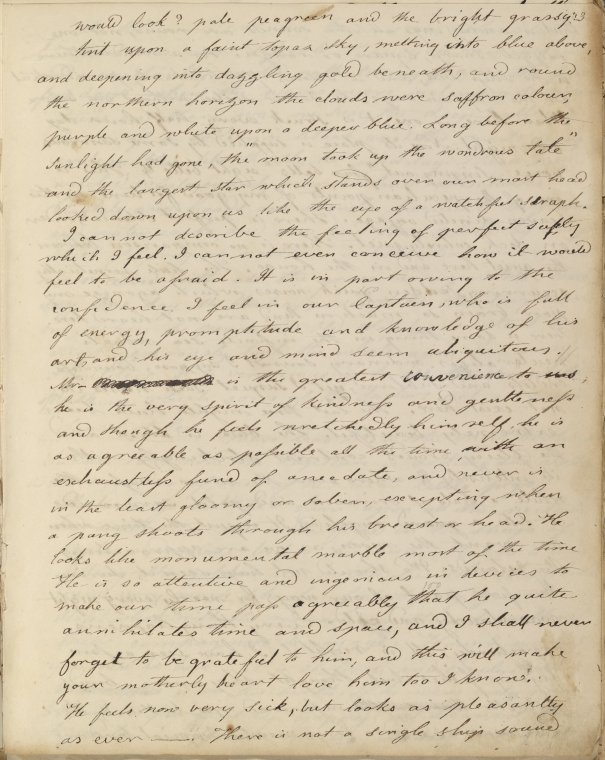 would look? pale peagreen and the bright grassy 23
tint upon a faint topaz sky, melting into blue above,
and deepening into dazzling gold beneath, and round
the northern horizon the clouds were saffron colour,
purple and white upon a deeper blue. Long before the
sunlight had gone, the "moon took up the wondrous tale"
and the largest star which stands over our mast head
looked down upon us like the eye of a watchful seraph.
I can not describe the feeling of perfect safety
which I feel. I cannot even conceive how it would
feel to be afraid. It is in part owing to the
confidence I feel in our Captain, who is full
of energy, promptitude and knowledge of his
art, and his eye and mind seem ubiquitous.
Mr is the greatest convenience to us;
he is the very spirit of kindness and gentleness
and though he feels wretchedly himself, he is
as agreeable as possible all the time, with an
exhaustless fund of anecdote, and never is
in the least gloomy or sober, excepting when
a pang shoots through his breast or head. He
looks like monumental marble most of the time
He is so attentive and ingenious in devices to
make our time pass agreeably that he quite
annihilates time and space, and I shall never
forget to be grateful to him, and this will make
your motherly heart love him too I know.
He feels now very sick, but looks as pleasantly
as ever — There is not a single ship sound